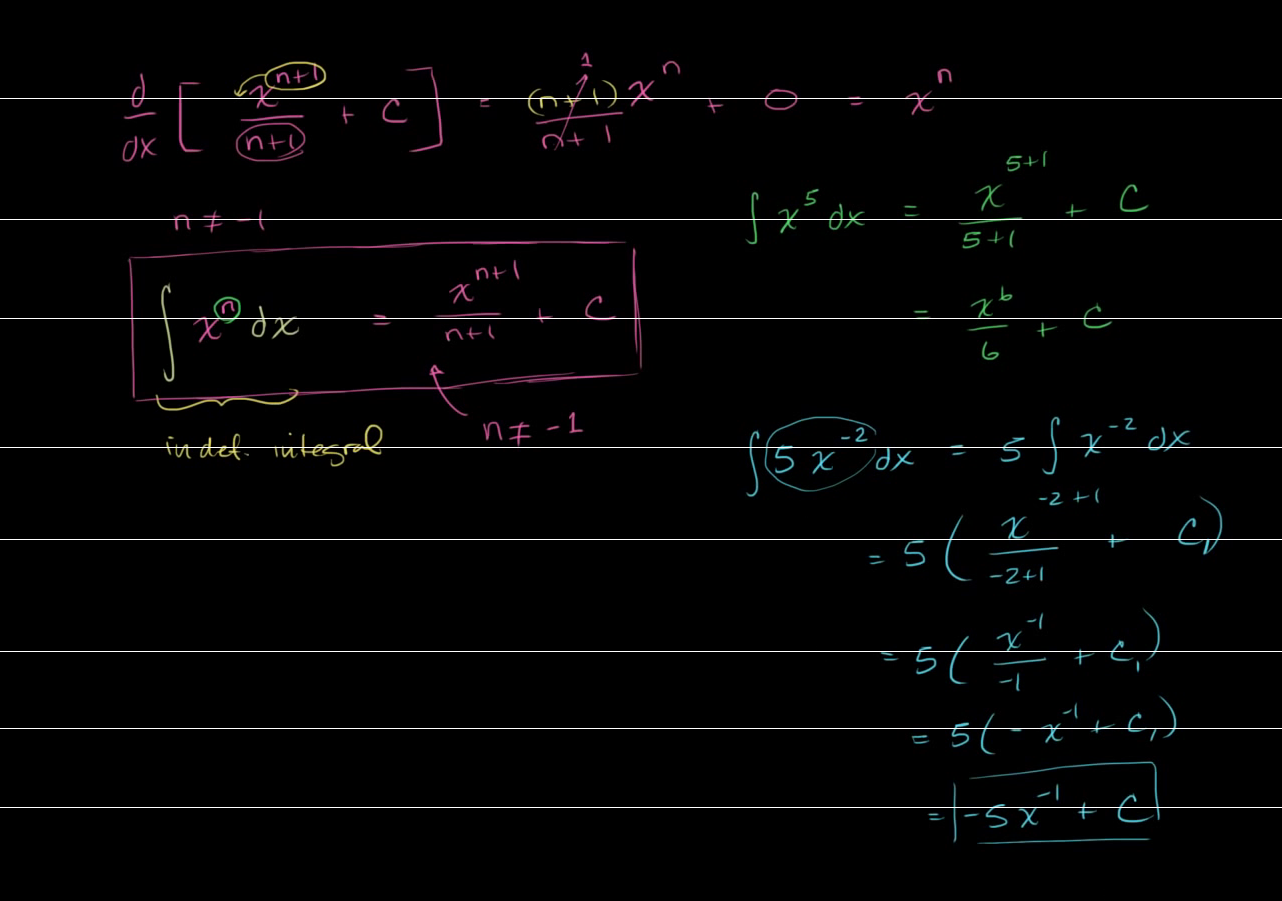 d/dx [ x^(n+1)/(n+1) + C ] = (n+1)x^n/(n+1) + 0 = x^n
1
n ≠ -1
∫ x^n dx = x^(n+1)/(n+1) + C
n ≠ -1
indef. integral
∫ x^5 dx = x^(5+1)/(5+1) + C
= x^6/6 + C
∫ 5x^(-2) dx = 5 ∫ x^(-2) dx
= 5 ( x^(-2+1)/(-2+1) + C₁)
= 5 ( x^(-1)/(-1) + C₁)
= 5 ( - x^(-1) + C₁)
= -5x^(-1) + C